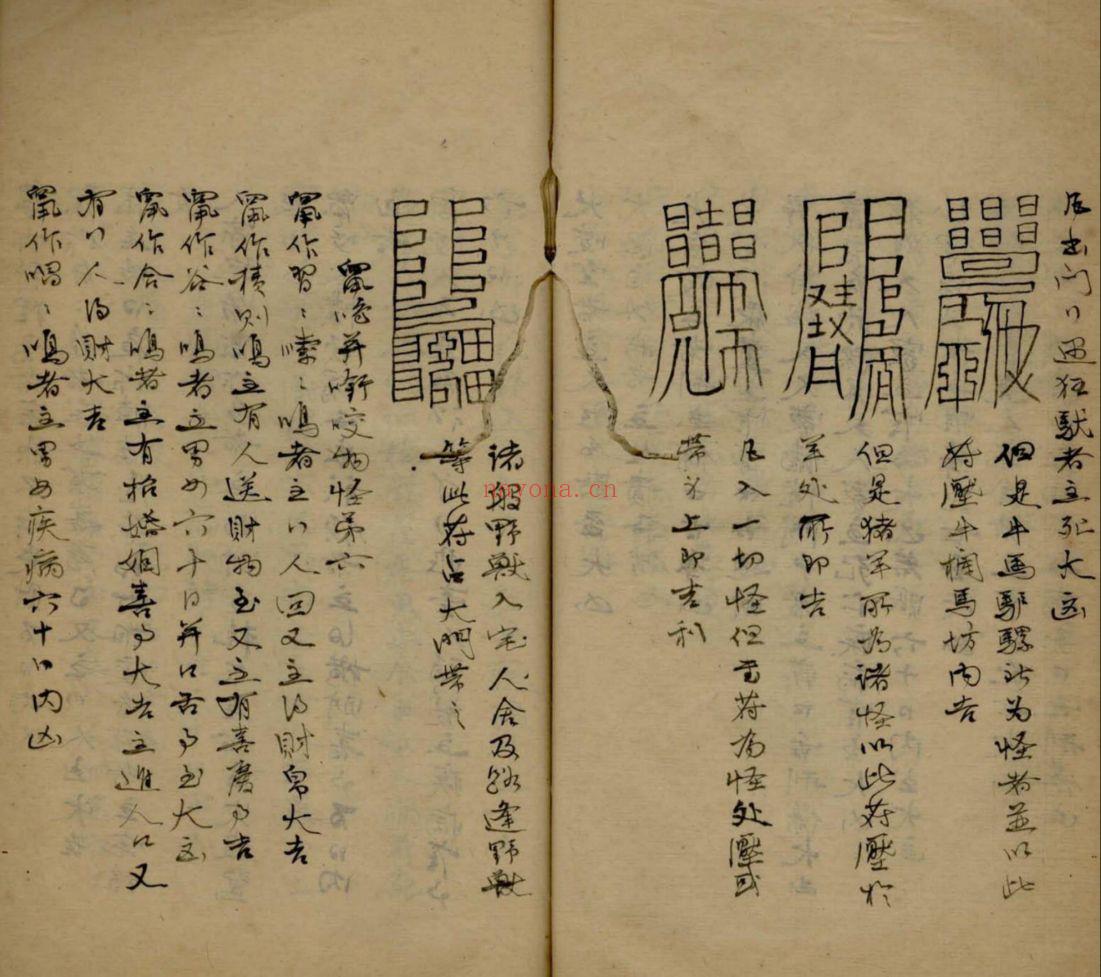 凡出门门遇狂獣者主死大凶
但是牛馬驢騾猪为怪者並以此
符壓牛欄馬坊内吉
但是猪羊所為诸怪以此符壓於
羊处所即吉
凡入一切怪但書符为怪处壓或
带身上即吉利
诸般野獸入宅人舍及路逢野獸
等此符占大門带之
鼠怪并嚙咬物怪第六
鼠作習〻嗦〻鳴者主口人回又主得財帛大吉
鼠作積則鳴主有人送財物至又主有喜慶事吉
鼠作谷〻鳴者主男女六十日并口舌事至大凶
鼠作合〻鳴者主有招婚姻喜事大吉主進人口又
有口人得財大吉
鼠作喝〻鳴者主男女疾病六十日内凶
nayona.cn